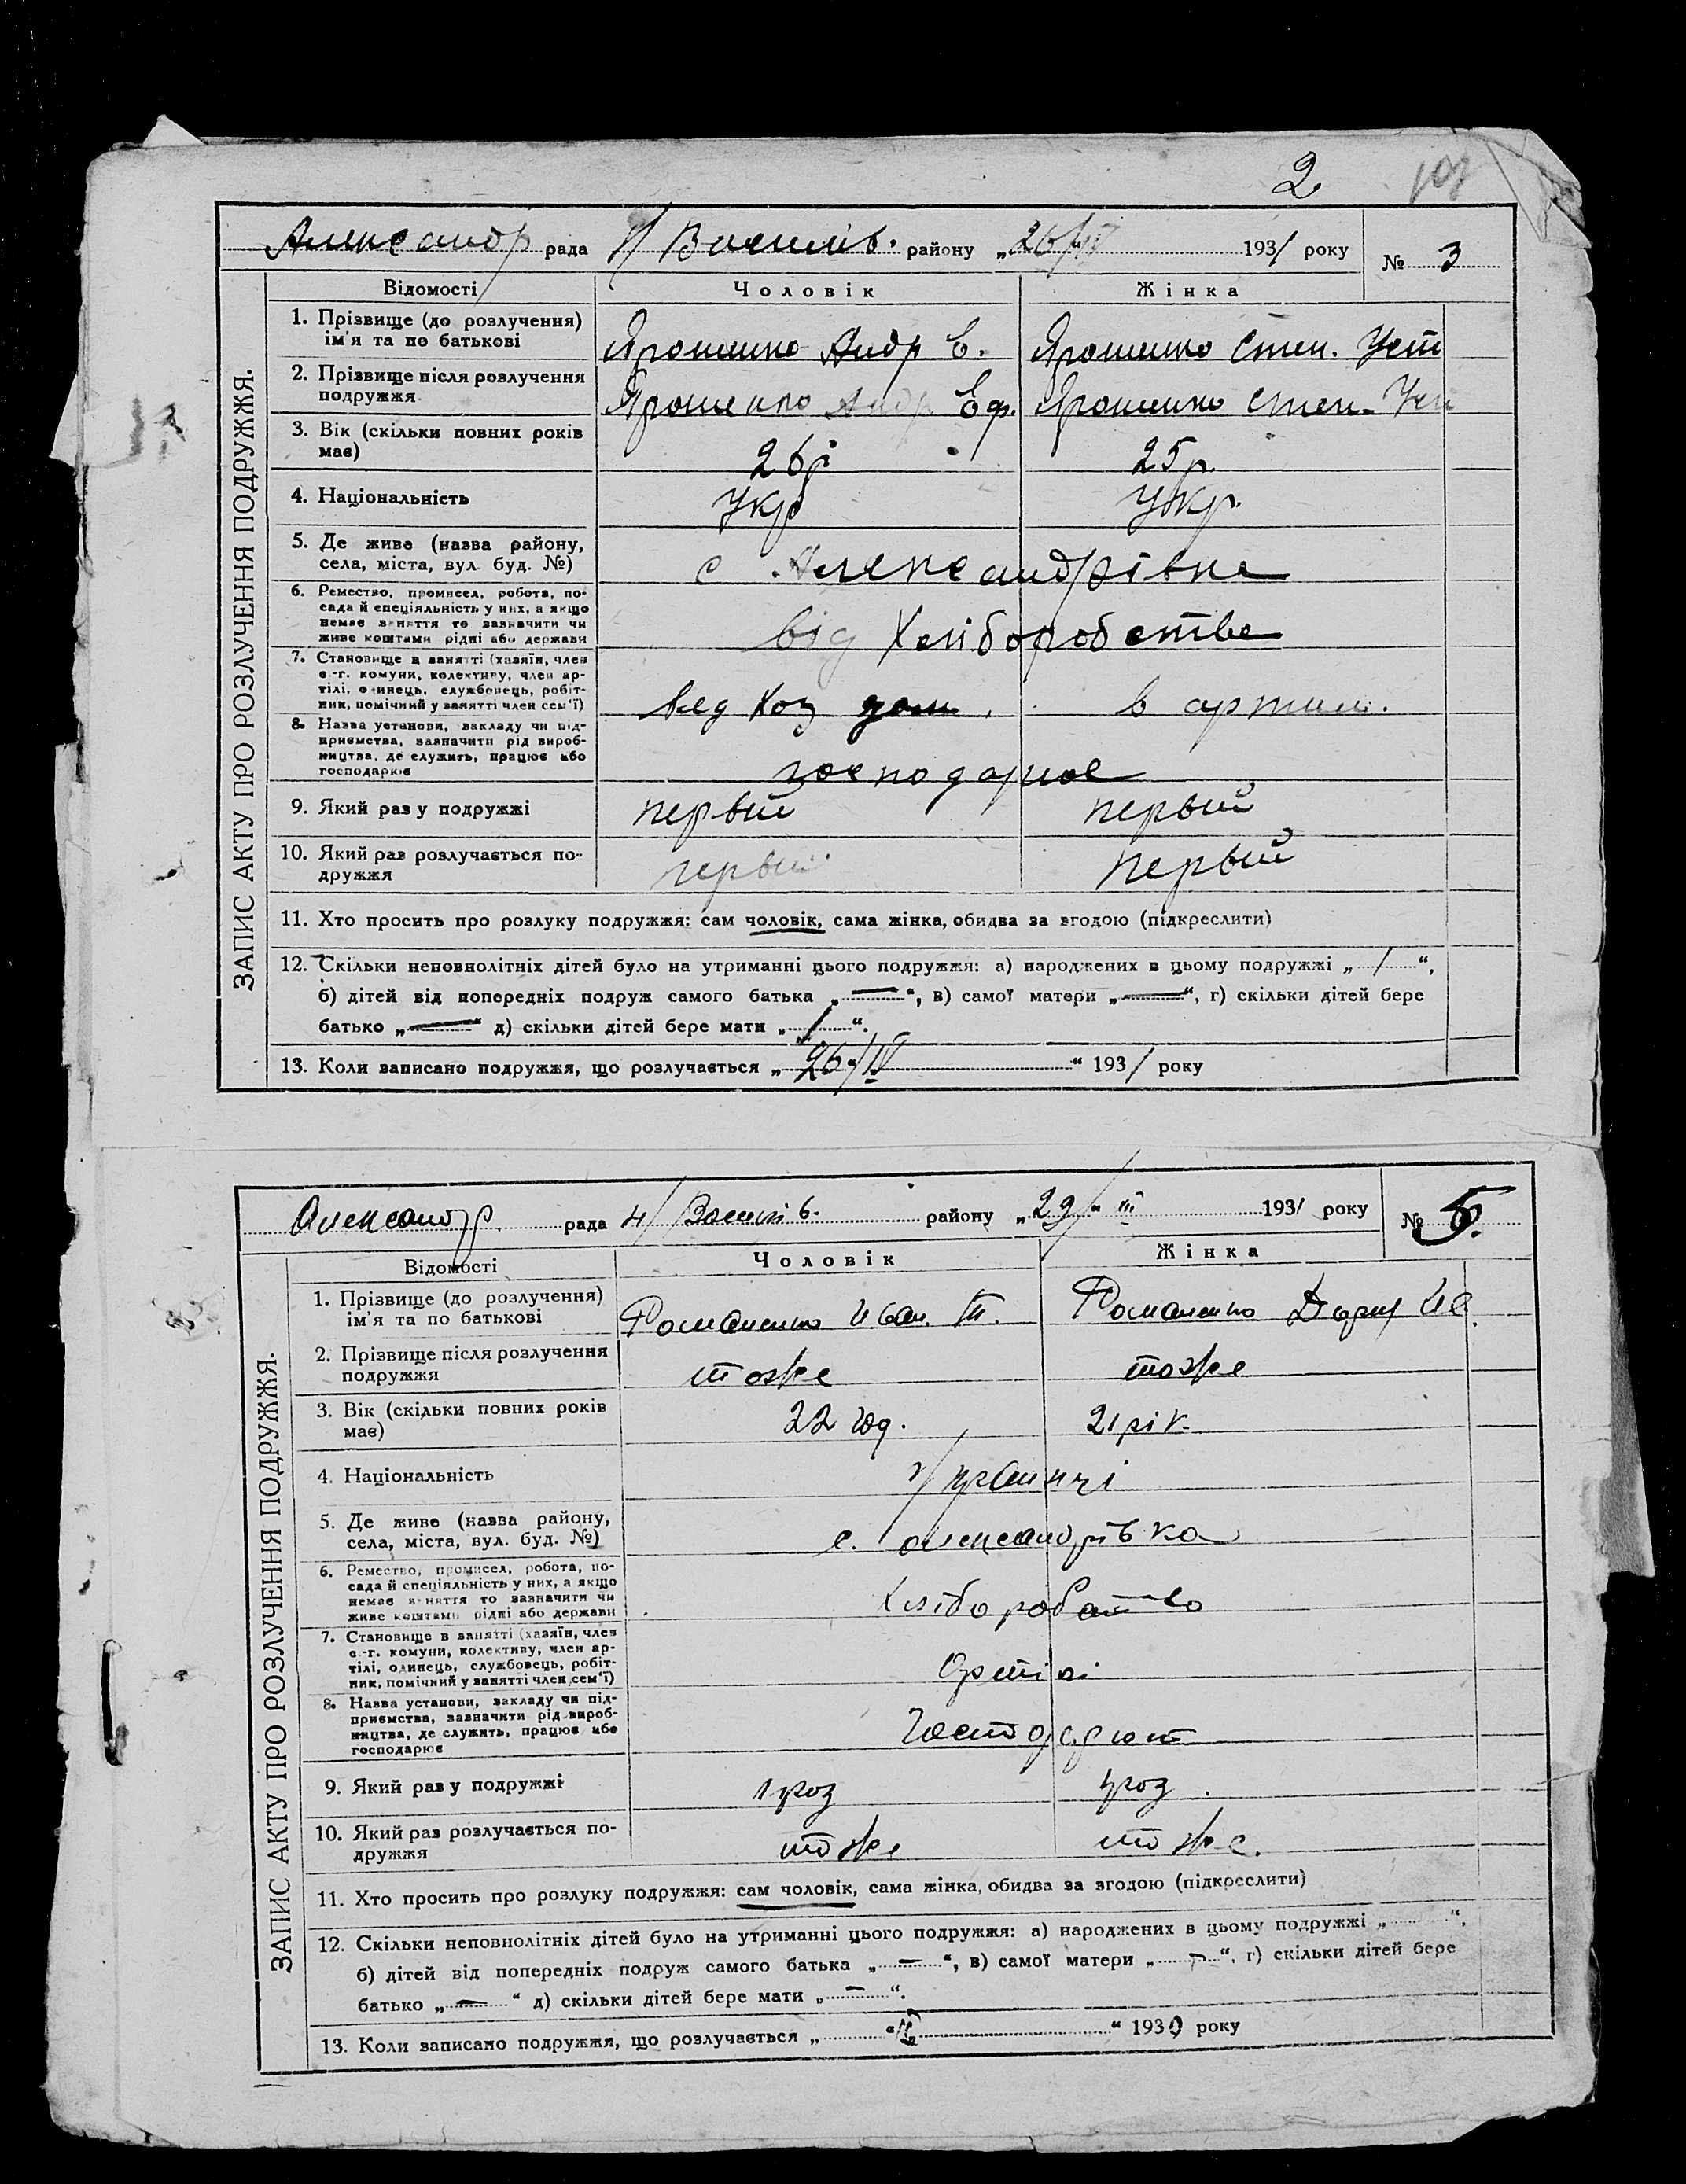 2
Александр рада Н/ Василів. району „26/IV 1931 року № 3
ЗАПИС АКТУ ПРО РОЗЛУЧЕННЯ ПОДРУЖЖЯ.
Відомості Чоловік Жінка
1. Прізвище (до розлучення) ім'я та по батькові Ярошенко Андр Е. Ярошенко Степ. Уст
2. Прізвище після розлучення подружжя Ярошенко Андр Еф. Ярошенко Степ. Уст
3. Вік (скільки повних років має) 26р 25р.
4. Національність Укр Укр.
5. Де живе (назва району, села, міста, вул. буд. №) с Александрівка
6. Ремество, промисел, робота, по-
сада й спеціяльність у них, а якщо
немає заняття то зазначити чи
живе коштами рідні або держави від Хліборобства
7. Становище в занятті (хазяїн, член
с.-г. комуни, колективу, член ар-
тілі, одинець, службовець, робіт-
ник, помічний у занятті член сем'ї) вед Хоз дом. в артил.
8. Назва установи, закладу чи під-
приємства, зазначити рід вироб-
ництва, де служить, працює або
господарює господарює
9. Який раз у подружжі первый первый
10. Який раз розлучається по-
дружжя первый первый
11. Хто просить про розлуку подружжя: сам чоловік, сама жінка, обидва за згодою (підкреслити)
12. Скільки неповнолітніх дітей було на утриманні цього подружжя: а) народжених в цьому подружжі „ / “,
б) дітей від попередніх подруж самого батька „ — “, в) самої матери „ — “, г) скільки дітей бере
батько „ — “ д) скільки дітей бере мати „ / “.
13. Коли записано подружжя, що розлучається „ 26/IV “ 1931 року
Александр. рада Н/ Василів. району „29/“ III 1931 року № 5.
ЗАПИС АКТУ ПРО РОЗЛУЧЕННЯ ПОДРУЖЖЯ.
Відомості Чоловік Жінка
1. Прізвище (до розлучення) ім'я та по батькові Романенко Иван. Т. Романенко
2. Прізвище після розлучення подружжя тоже тоже
3. Вік (скільки повних років має) 22 год. 21 рік.
4. Національність
5. Де живе (назва району, села, міста, вул. буд. №) с. Олександрівка
6. Ремество, промисел, робота, по-
сада й спеціяльність у них, а якщо
немає заняття то зазначити чи
живе коштами рідні або держави Хліборобство
7. Становище в занятті (хазяїн, член
с.-г. комуни, колективу, член ар-
тілі, одинець, службовець, робіт-
ник, помічний у занятті член сем'ї) Артілі
8. Назва установи, закладу чи під-
приємства, зазначити рід вироб-
ництва, де служить, працює або
господарює
9. Який раз у подружжі 1 раз 1 раз
10. Який раз розлучається по-
дружжя тоже тоже.
11. Хто просить про розлуку подружжя: сам чоловік, сама жінка, обидва за згодою (підкреслити)
12. Скільки неповнолітніх дітей було на утриманні цього подружжя: а) народжених в цьому подружжі „ “,
б) дітей від попередніх подруж самого батька „ — “, в) самої матери „ — “, г) скільки дітей бере
батько „ — “ д) скільки дітей бере мати „ — “.
13. Коли записано подружжя, що розлучається „ “ 1930 року